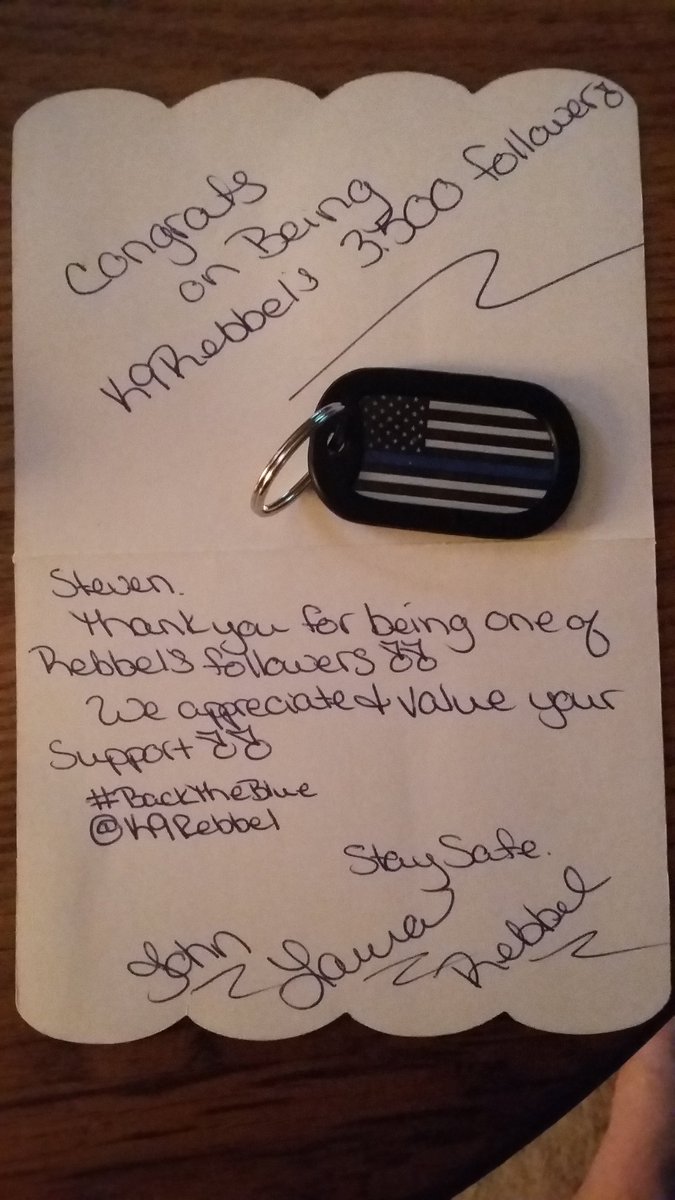 Congrats
on Being
K9Rebbel's 3.500 followers
Steven.
Thank you for being one of
Rebbel's followers
We appreciate & value your
Support
#BackTheBlue
@K9Rebbel
Stay Safe.
John Laura Rebbel